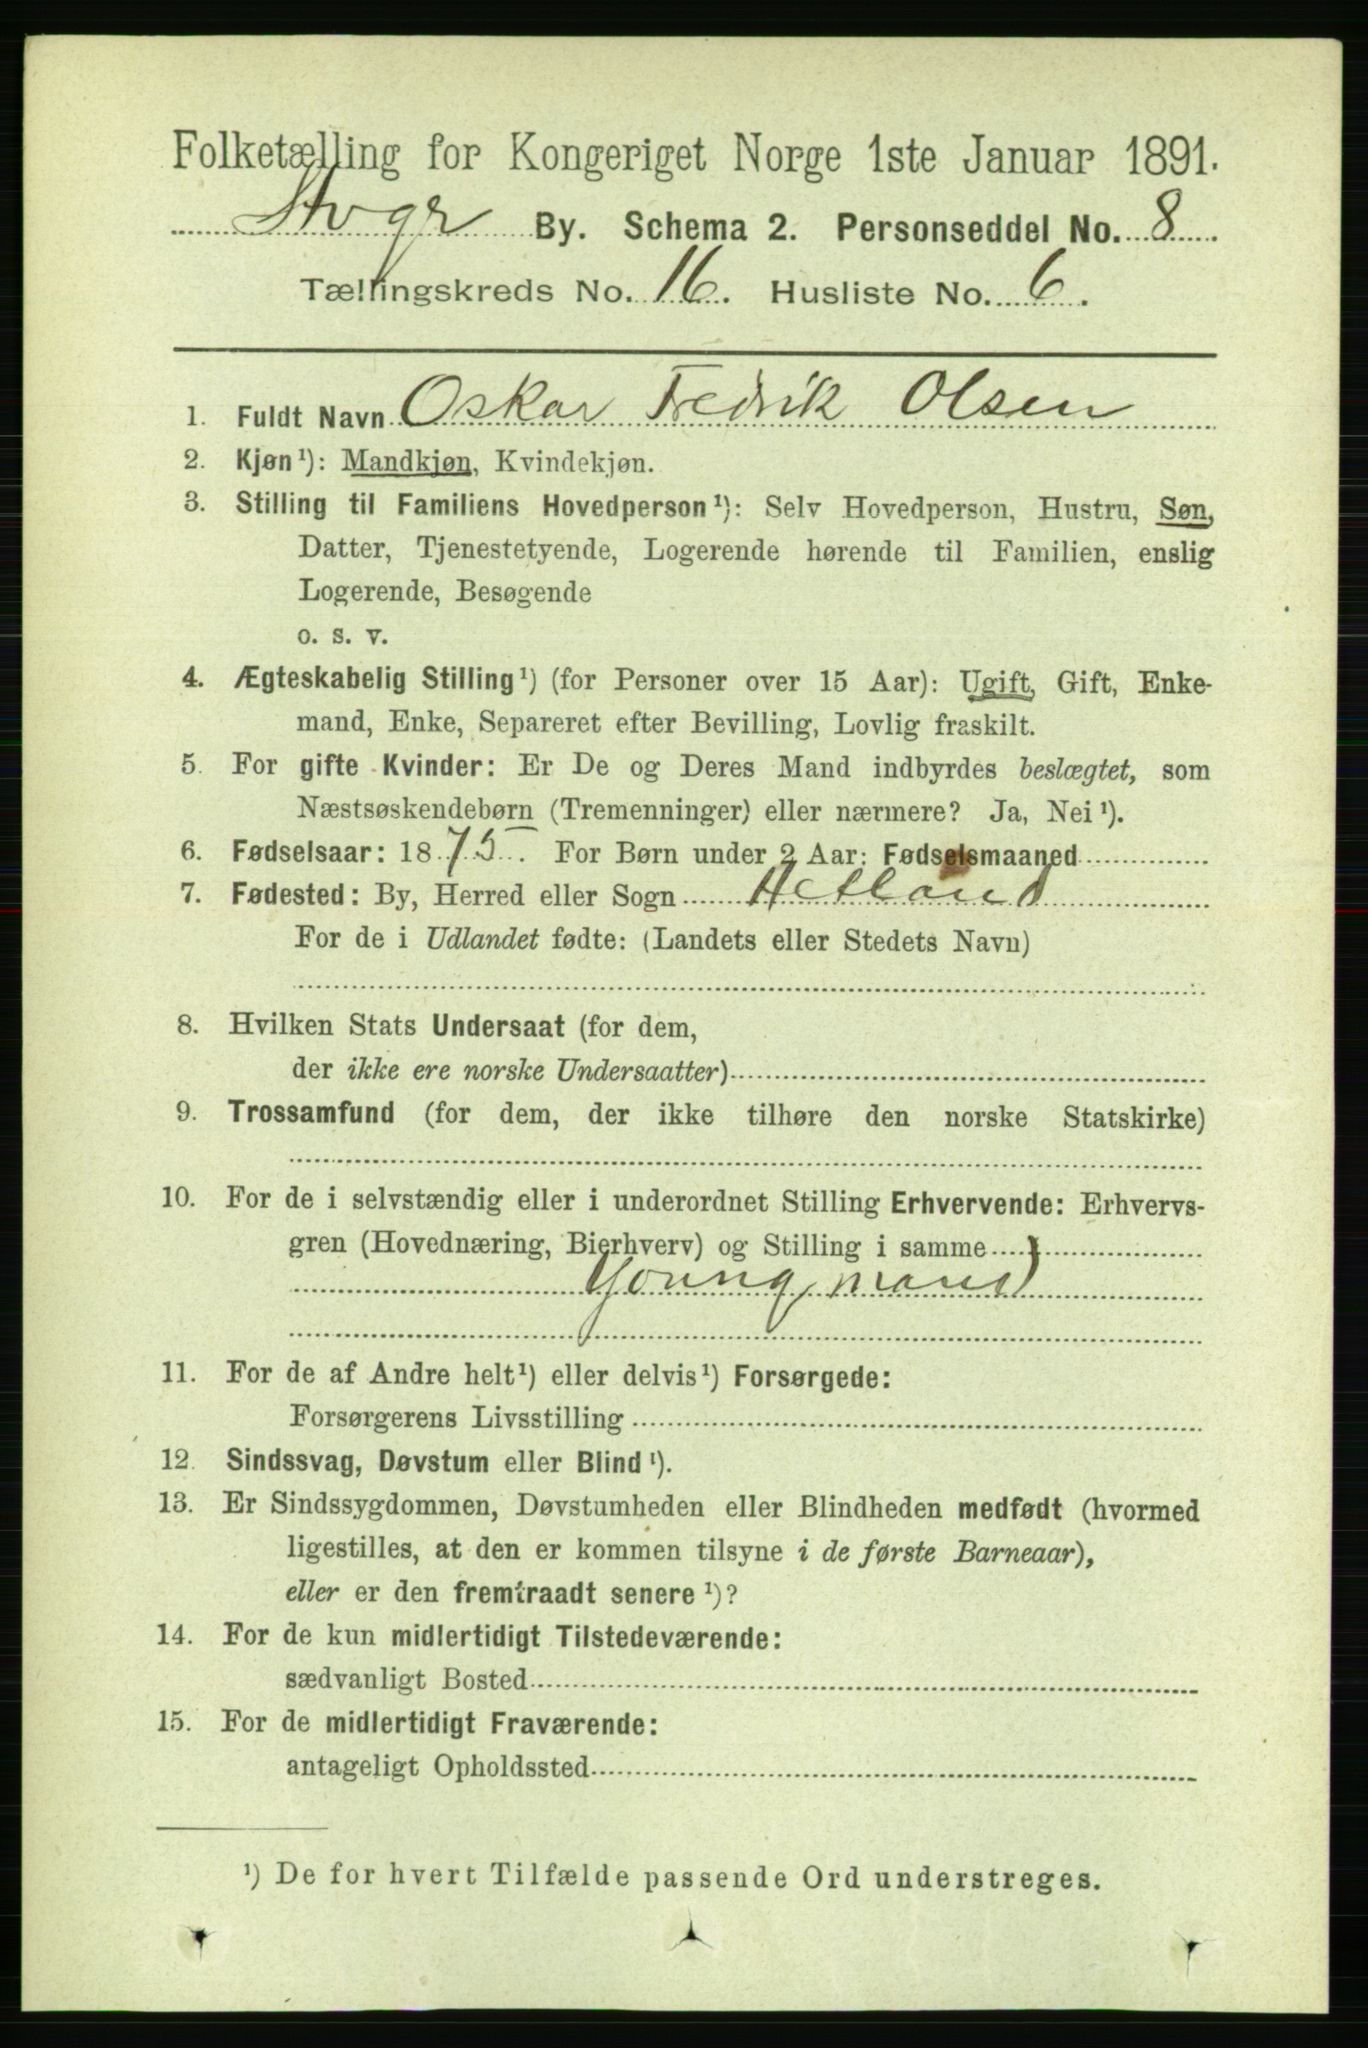 Folketælling for Kongeriget Norge 1ste Januar 1891.
Stvgr By. Schema 2. Personseddel No. 8
Tællingskreds No. 16. Husliste No. 6.
1. Fuldt Navn Oskar Fredrik Olsen
2. Kjøn¹): Mandkjøn, Kvindekjøn.
3. Stilling til Familiens Hovedperson¹): Selv Hovedperson, Hustru, Søn,
Datter, Tjenestetyende, Logerende hørende til Familien, enslig
Logerende, Besøgende
o. s. v.
4. Ægteskabelig Stilling¹) (for Personer over 15 Aar): Ugift, Gift, Enke-
mand, Enke, Separeret efter Bevilling, Lovlig fraskilt.
5. For gifte Kvinder: Er De og Deres Mand indbyrdes beslægtet, som
Næstsøskendebørn (Tremenninger) eller nærmere? Ja, Nei¹).
6. Fødselsaar: 1875. For Børn under 2 Aar: Fødselsmaaned
7. Fødested: By, Herred eller Sogn Hetland
For de i Udlandet fødte: (Landets eller Stedets Navn)
8. Hvilken Stats Undersaat (for dem,
der ikke ere norske Undersaatter)
9. Trossamfund (for dem, der ikke tilhøre den norske Statskirke)
10. For de i selvstændig eller i underordnet Stilling Erhvervende: Erhvervs-
gren (Hovednæring, Bierhverv) og Stilling i samme
Youngmand
11. For de af Andre helt¹) eller delvis¹) Forsørgede:
Forsørgerens Livsstilling
12. Sindssvag, Døvstum eller Blind¹).
13. Er Sindssygdommen, Døvstumheden eller Blindheden medfødt (hvormed
ligestilles, at den er kommen tilsyne i de første Barneaar),
eller er den fremtraadt senere¹)?
14. For de kun midlertidigt Tilstedeværende:
sædvanligt Bosted
15. For de midlertidigt Fraværende:
antageligt Opholdssted
¹) De for hvert Tilfælde passende Ord understreges.